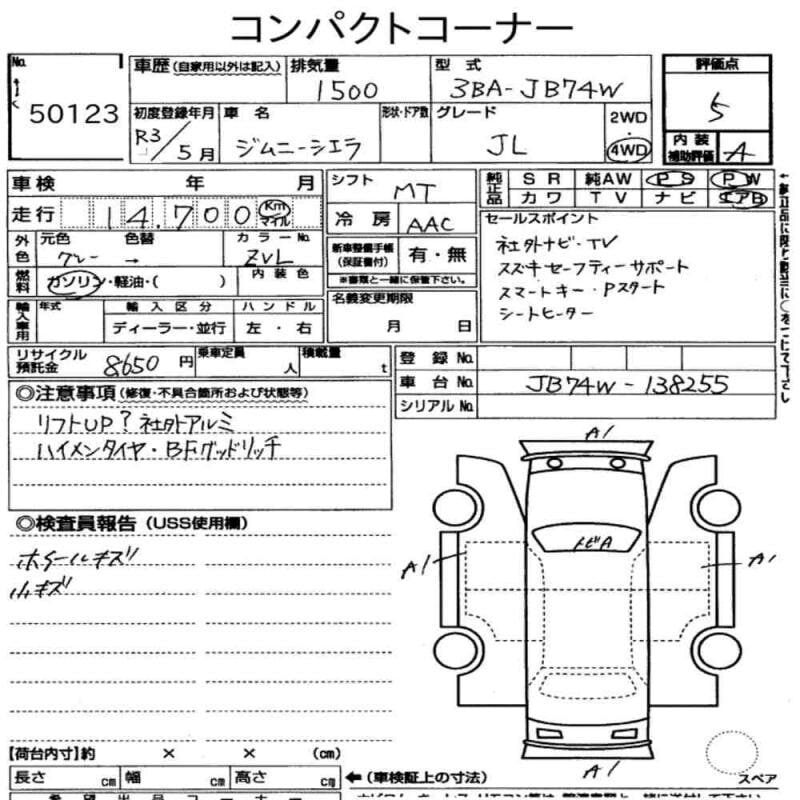 コンパクトコーナー
No.
50123
車歴(自家用以外は記入)
排気量
1500
型式
3BA-JB74W
評価点
5
初度登録年月
R3/5月
車名
ジムニーシエラ
形状・ドア数
グレード
JL
2WD
・
4WD
内装
補助評価
A
車検 年 月
走行 14,700 Km マイル
シフト
MT
冷房
AAC
純正品
SR 純AW PS PW
カワ TV ナビ エアB
外色
元色
グレー
色替
→
カラーNo.
ZVL
内装色
燃料
ガソリン・軽油・( )
新車整備手帳
(保証書付)
有・無
※書類と一緒に保管下さい。
セールスポイント
社外ナビ・TV
スズキセーフティーサポート
スマートキー・Pスタート
シートヒーター
輸入車用
年式
輸入区分
ディーラー・並行
ハンドル
左・右
名義変更期限
月 日
リサイクル
預託金
8650円
乗車定員
人
積載量
t
登録No.
車台No.
JB74W-138255
シリアルNo.
◎注意事項(修復・不具合箇所および状態等)
リフトUP?社外アルミ
ハイメンタイヤ・BFグッドリッチ
◎検査員報告(USS使用欄)
ホイールキズ
小キズ
A1
トビA
A1
A1
A1
【荷台内寸】約 × × (cm)
長さ cm
幅 cm
高さ cm
←(車検証上の寸法)
スペア